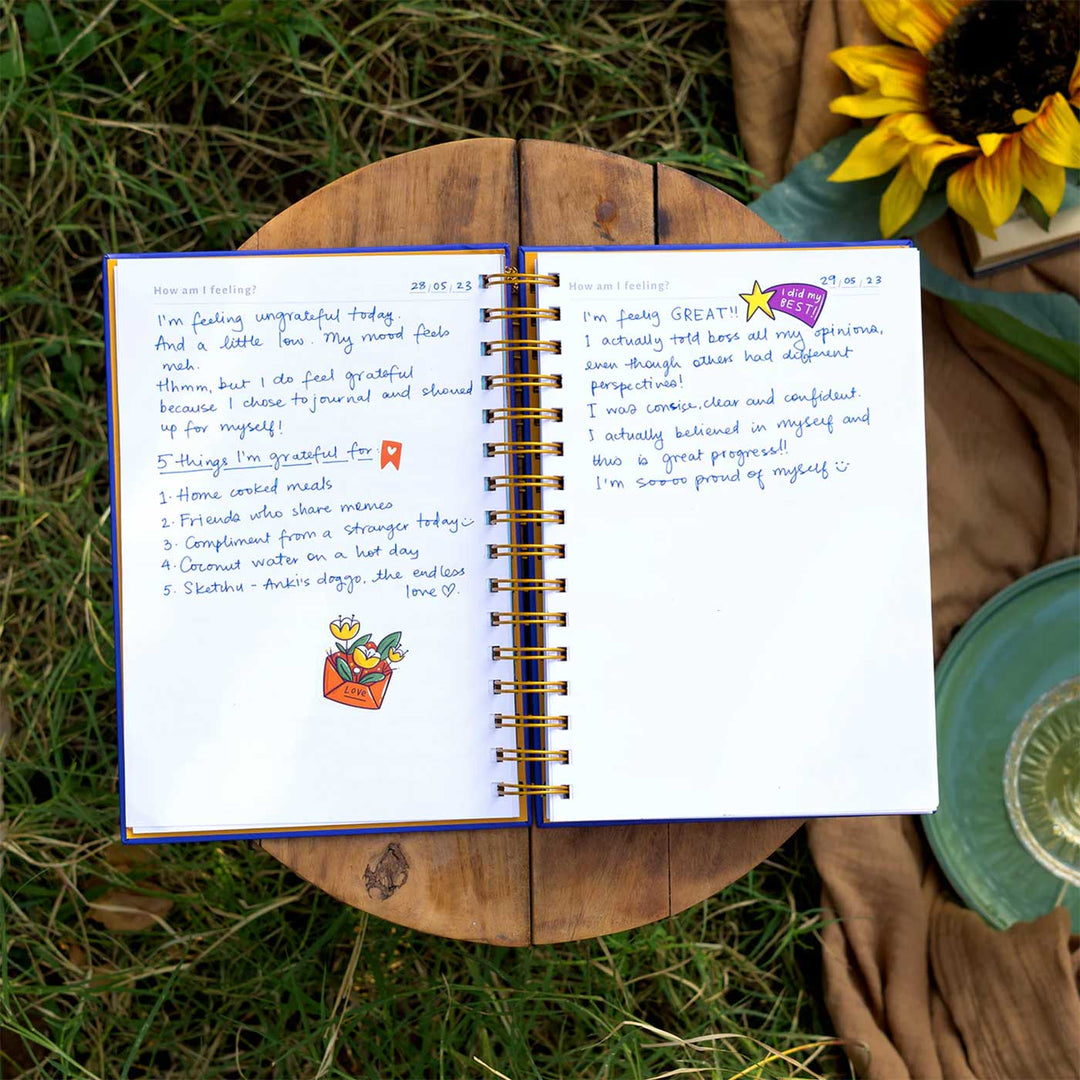 How am I feeling?
28/05/23
I'm feeling ungrateful today.
And a little low. My mood feels
meh.
Hhmm, but I do feel grateful
because I chose to journal and showed
up for myself!
5 things I'm grateful for:
1. Home cooked meals
2. Friends who share memes
3. Compliment from a stranger today
4. Coconut water on a hot day
5. Sketchu - Anki's doggo, the endless
love ♡.
Love
How am I feeling?
29/05/23
I did my
BEST!
I'm feelig GREAT!!
I actually told boss all my opinions,
even though others had different
perspectives!
I was consice, clear and confident.
I actually believed in myself and
this is great progress!!
I'm soooo proud of myself